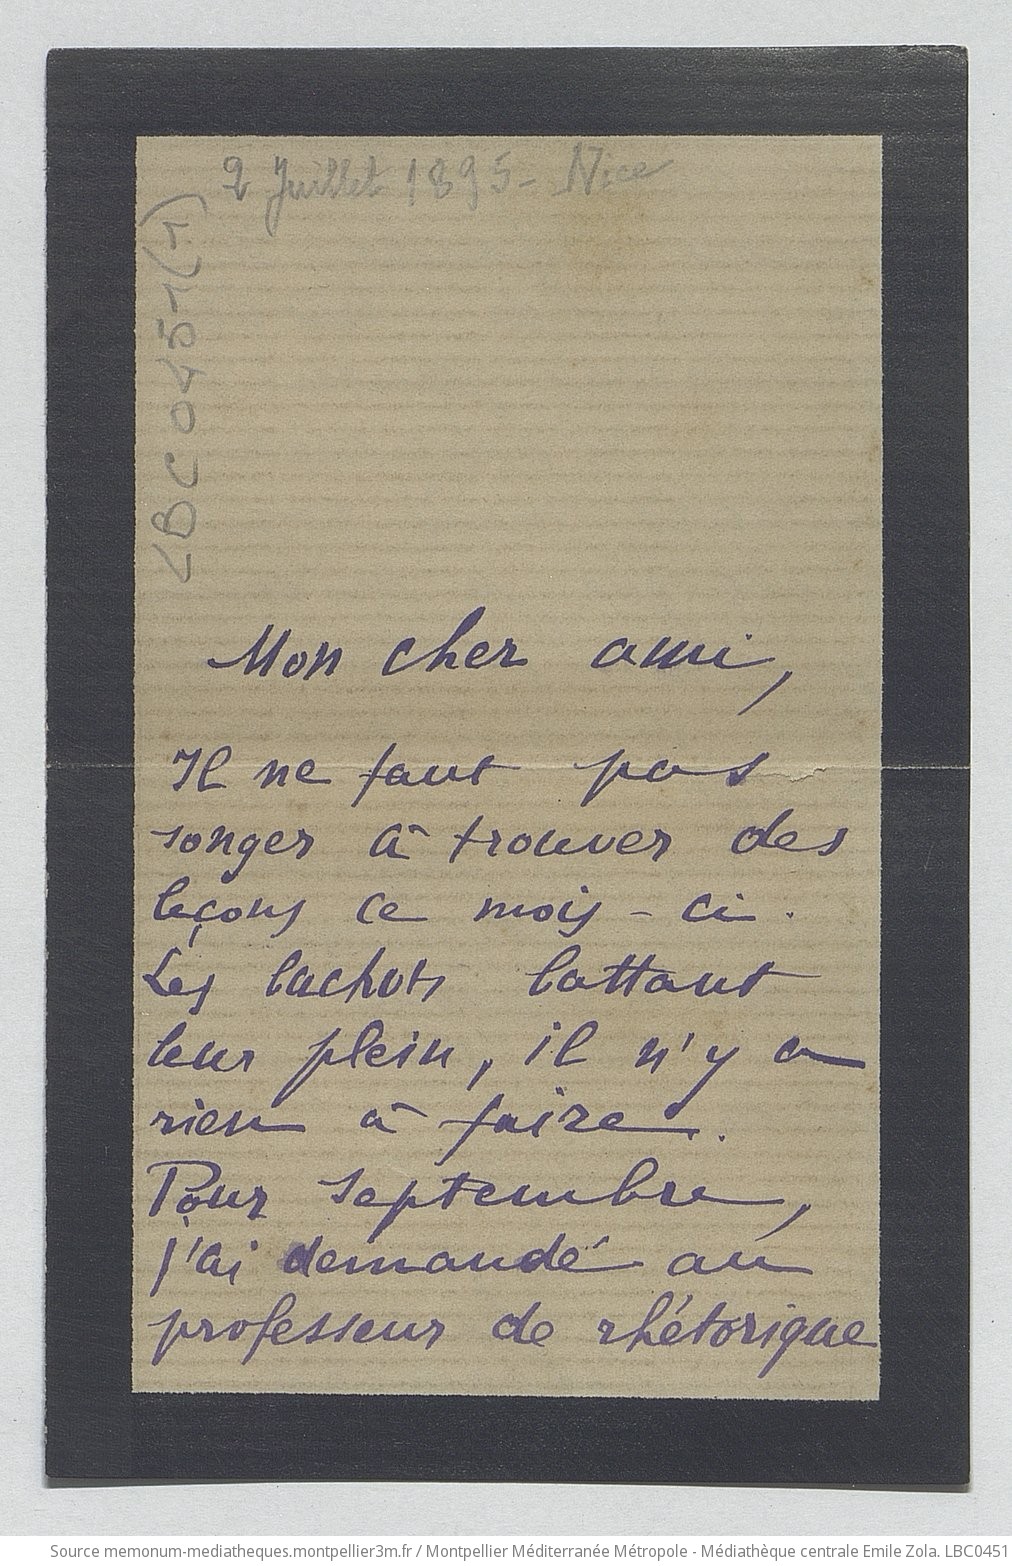 2 Juillet 1895 - Nice
LBC0451(1)
Mon cher ami,
Il ne faut pas
songer à trouver des
leçons ce mois-ci.
Les bachots battant
leur plein, il n'y a
rien à faire.
Pour septembre,
j'ai demandé au
professeur de rhétorique
Source memonum-mediatheques.montpellier3m.fr / Montpellier Méditerranée Métropole - Médiathèque centrale Emile Zola. LBC0451